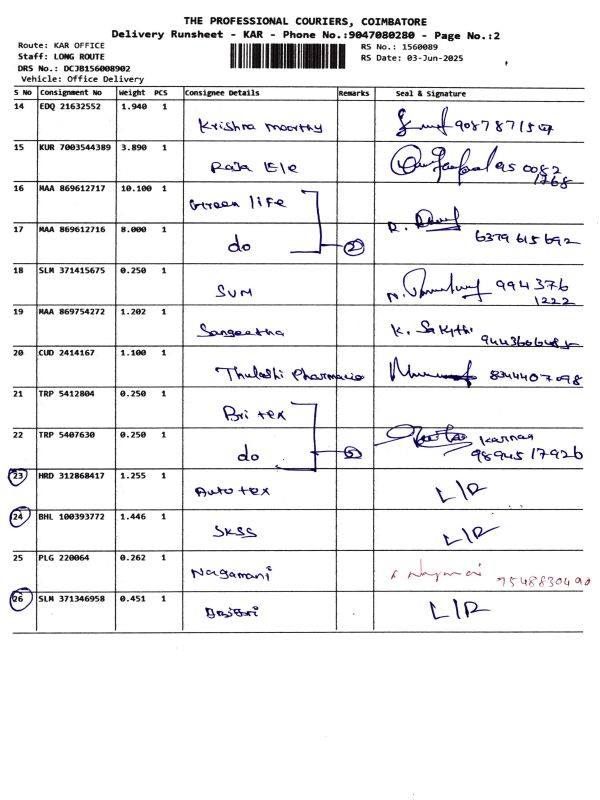 THE PROFESSIONAL COURIERS, COIMBATORE
Delivery Runsheet - KAR - Phone No.:9047080280 - Page No.:2
Route: KAR OFFICE
RS No.: 1560089
Staff: LONG ROUTE
RS Date: 03-Jun-2025
DRS No.: DCJB156008902
Vehicle: Office Delivery
S No Consignment No Weight PCS Consignee Details Remarks Seal & Signature
14 EDQ 21632552 1.940 1 Krishna moorthy
15 KUR 7003544389 3.890 1 Raja Ele 95 0082 1768
16 MAA 869612717 10.100 1 Green life
17 MAA 869612716 8.000 1 do 2 6379 615 692
18 SLM 371415675 0.250 1 SVM 994376 1222
19 MAA 869754272 1.202 1 Sangeetha K. Sakythi
20 CUD 2414167 1.100 1 Thulashi Pharmacie 8344407098
21 TRP 5412804 0.250 1 Bri tex
22 TRP 5407630 0.250 1 do 98945 17926
23 HRD 312868417 1.255 1 Auto tex L/R
24 BHL 100393772 1.446 1 SKSS L/R
25 PLG 220064 0.262 1 Nagamani 7548830490
26 SLM 371346958 0.451 1 L/R